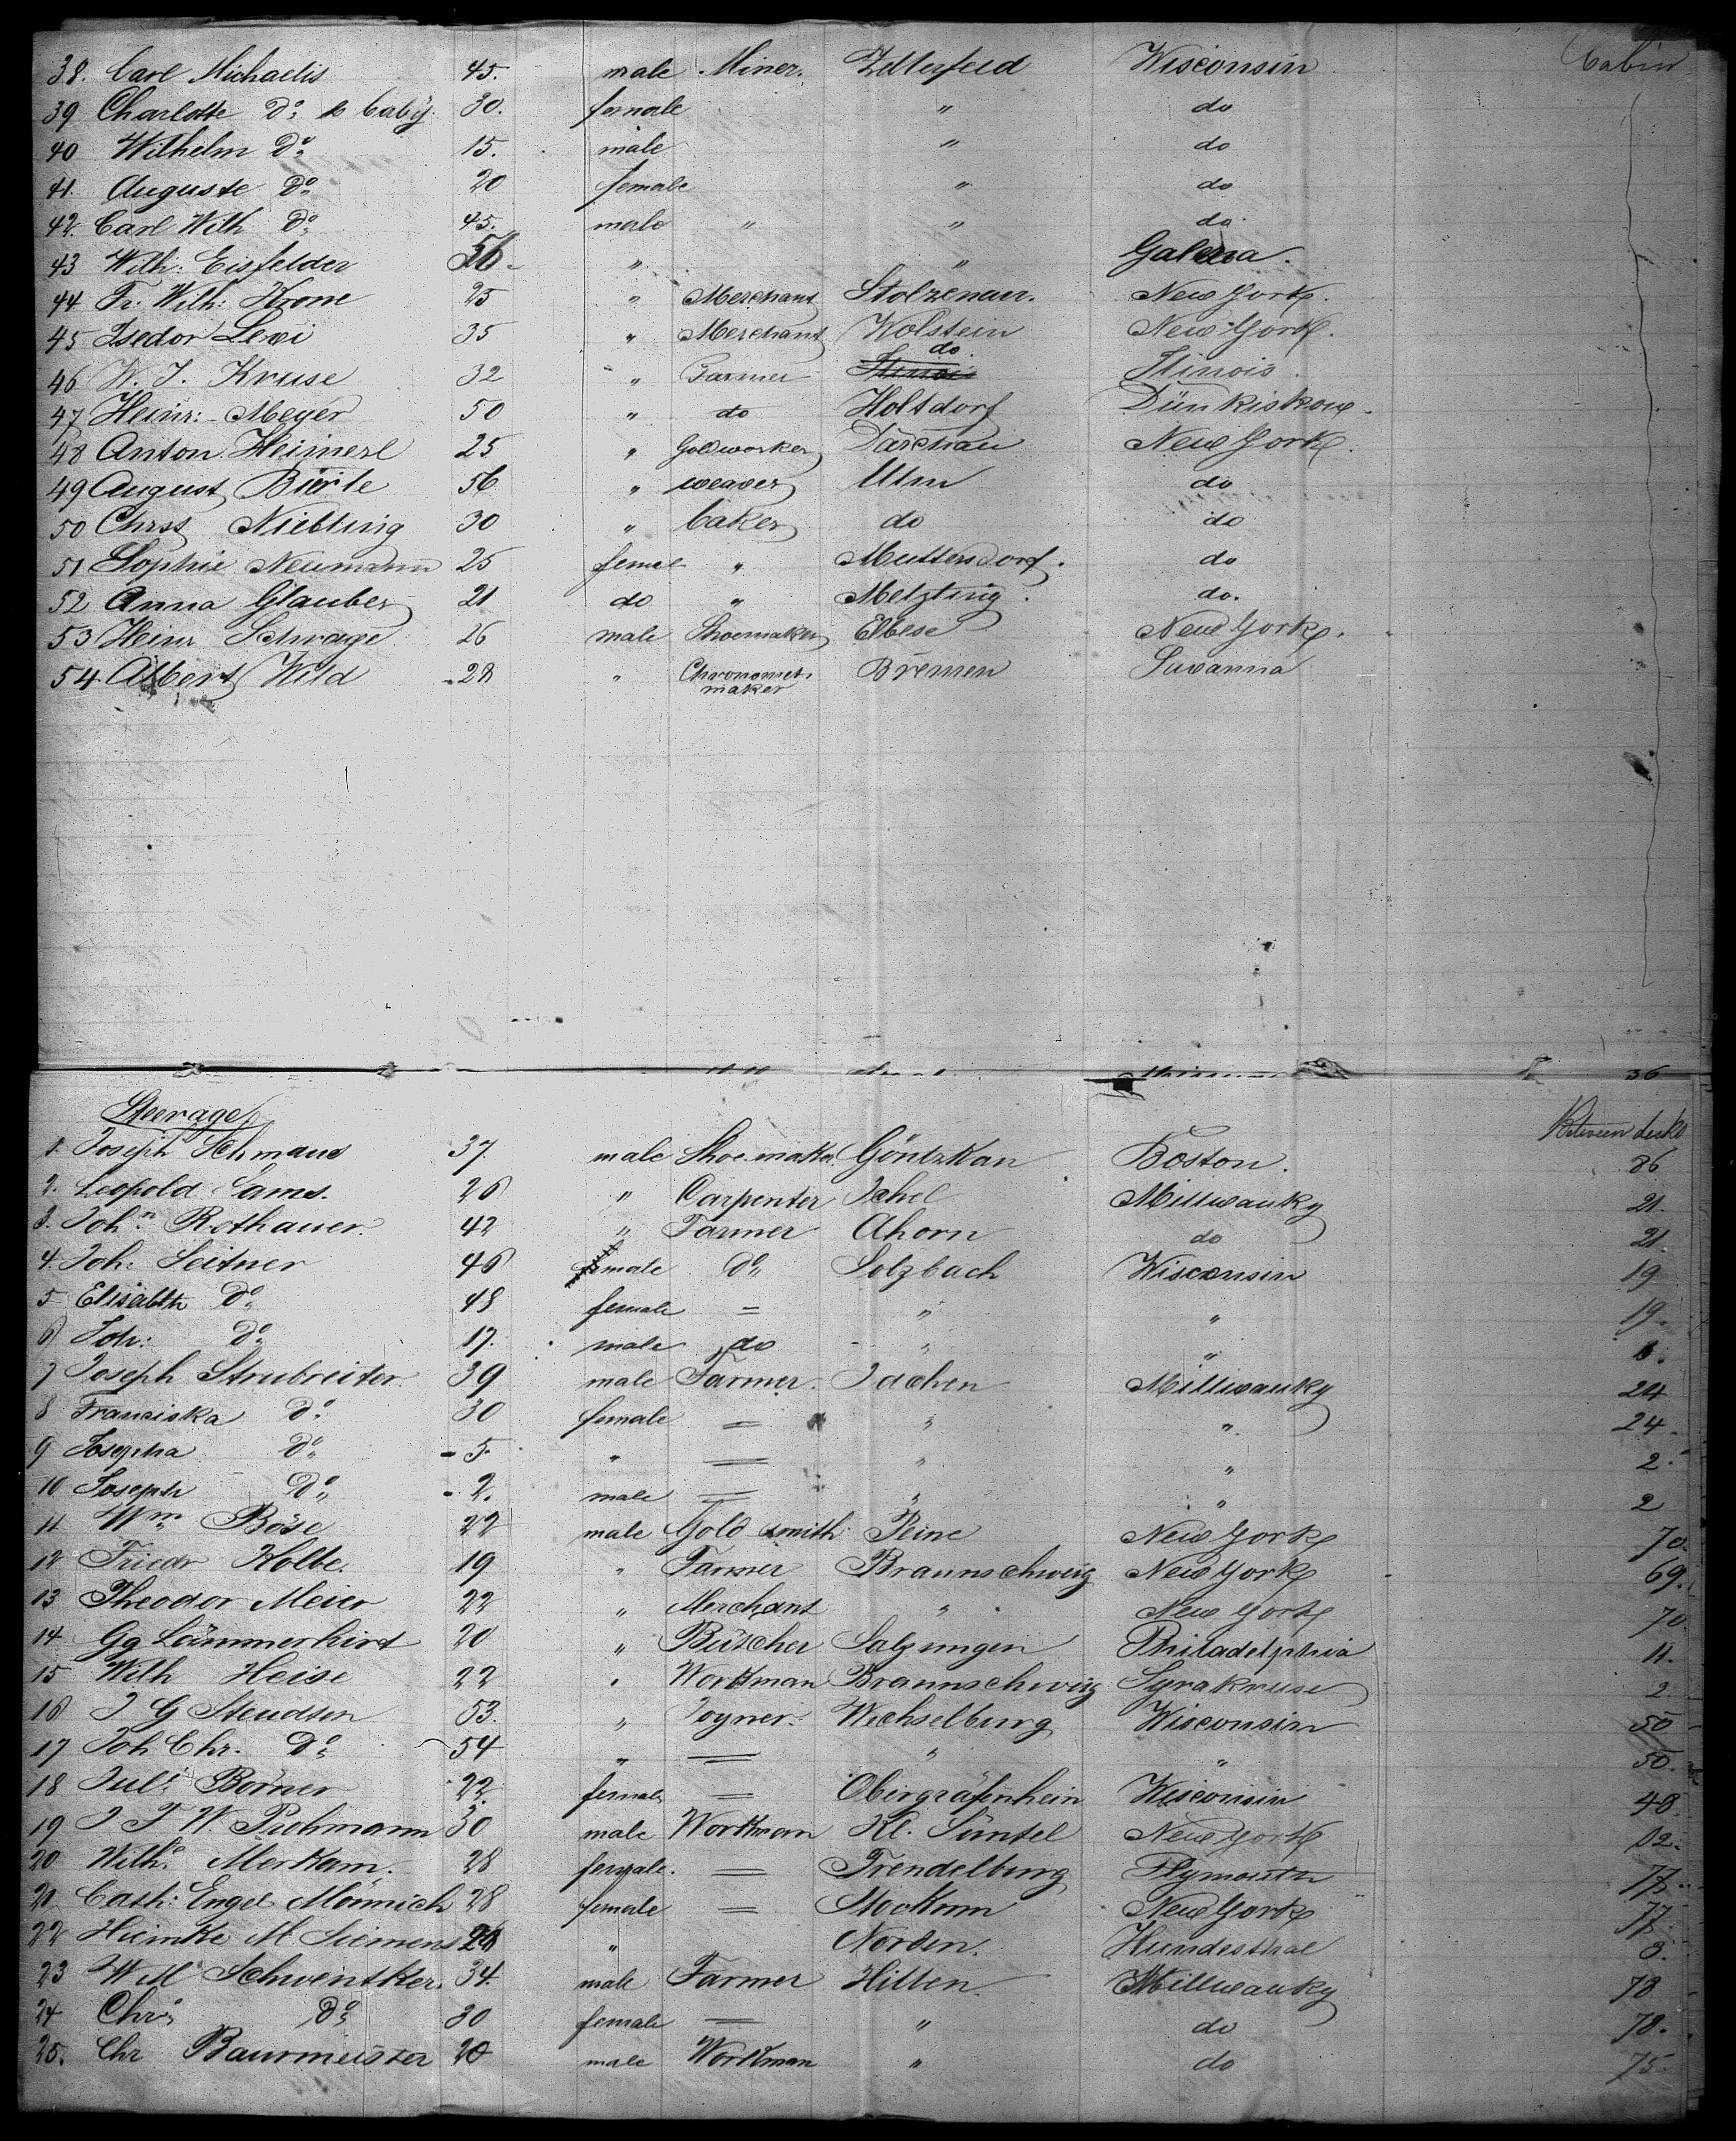 38. Carl Michaelis 45. male Miner. Zellerfeld Wisconsin Cabin
39 Charlotte do & baby. 30. female " do
40 Wilhelm do 15. male " do
41. Auguste do 20 female " do
42. Carl Wilh do 45. male " " do
43 Wilh: Eisfelder 56 " " Galena.
44 Fr: Wilh: Krone 25 " Merchant Stolzenau. New York.
45 Isedor Levi 35 " Merchant Wolstein New York.
46 W. J. Kruse 32 " Farmer do. Ilinois.
47 Heinr: Meyer 50 " do Holtdorf
48 Anton Heimerl 25 " Goldworker Darchau New York.
49 August 56 " weaver Ulm do
50 Chrst Niebling 30 " baker do do
51 Sophie Neumann 25 femel " Muttersdorf. do
52 Anna Glauber 21 do " Metzling. do.
53 Heinr Schrage 26 male Shoemaker Elbese New York.
54. Albert Wild 28 " Chronomet. maker Bremen Savanna
36
Steerage Between decks
1. Joseph Schmaus 37. male Shoemaker Göntzkan Boston. 36
2. Leopold Sams. 26 " Carpenter Ischel Millwauky 21.
3. Joh.n Rothauer. 42 " Farmer Ahorn do 21.
4. Joh: Leitner 46 male do Solzbach Wisconsin 19
5 Elisabth do 48 female = " " 19.
6 Joh: do 17. male do " "
7 Joseph Strubreiter. 39 male Farmer. Jachen Millwauky 24
8 Franciska do 30 female = " " 24.
9 Josepha do 5. " = " " 2.
10 Joseph do 2. male = " " 2
11 Wm Böse 22 male Gold smith Peine New York 70.
12 Friedr Kolbe. 19 " Farmer Braunschweig New York 69.
13 Theodor Meier 22 " Merchant " New York 70.
14 Gg Lämmerhirt 20 " Büscher Salzungen Philadelphia 11.
15 Wilh Heise 22 " Workman Braunschweig Syrakruse 2.
16 J G Steudsen 53. " Joyner. Wechselburg Wisconsin 50
17 Joh Chr. do 54 " = " " 50.
18 Juli Borner 22. female = Obergräfenhein Wisconsin 40.
19 J F W. Puhmann 30 male Workman Kl. Süntel New York 12.
20 Wilh. Merkam. 28 female. = Trendelburg Plymouth 77.
21 Cath: Engel Mönnich 28 female = Stockom New York 77.
22 Heimke M Siemens " Norden. Hundesthal 3.
23 W M Schwentker. 34. male Farmer Hillen. Millwauky 78
24 Chr. do 30 female = " do 78.
25. Chr Baurmeister 20 male Workman " do 75.